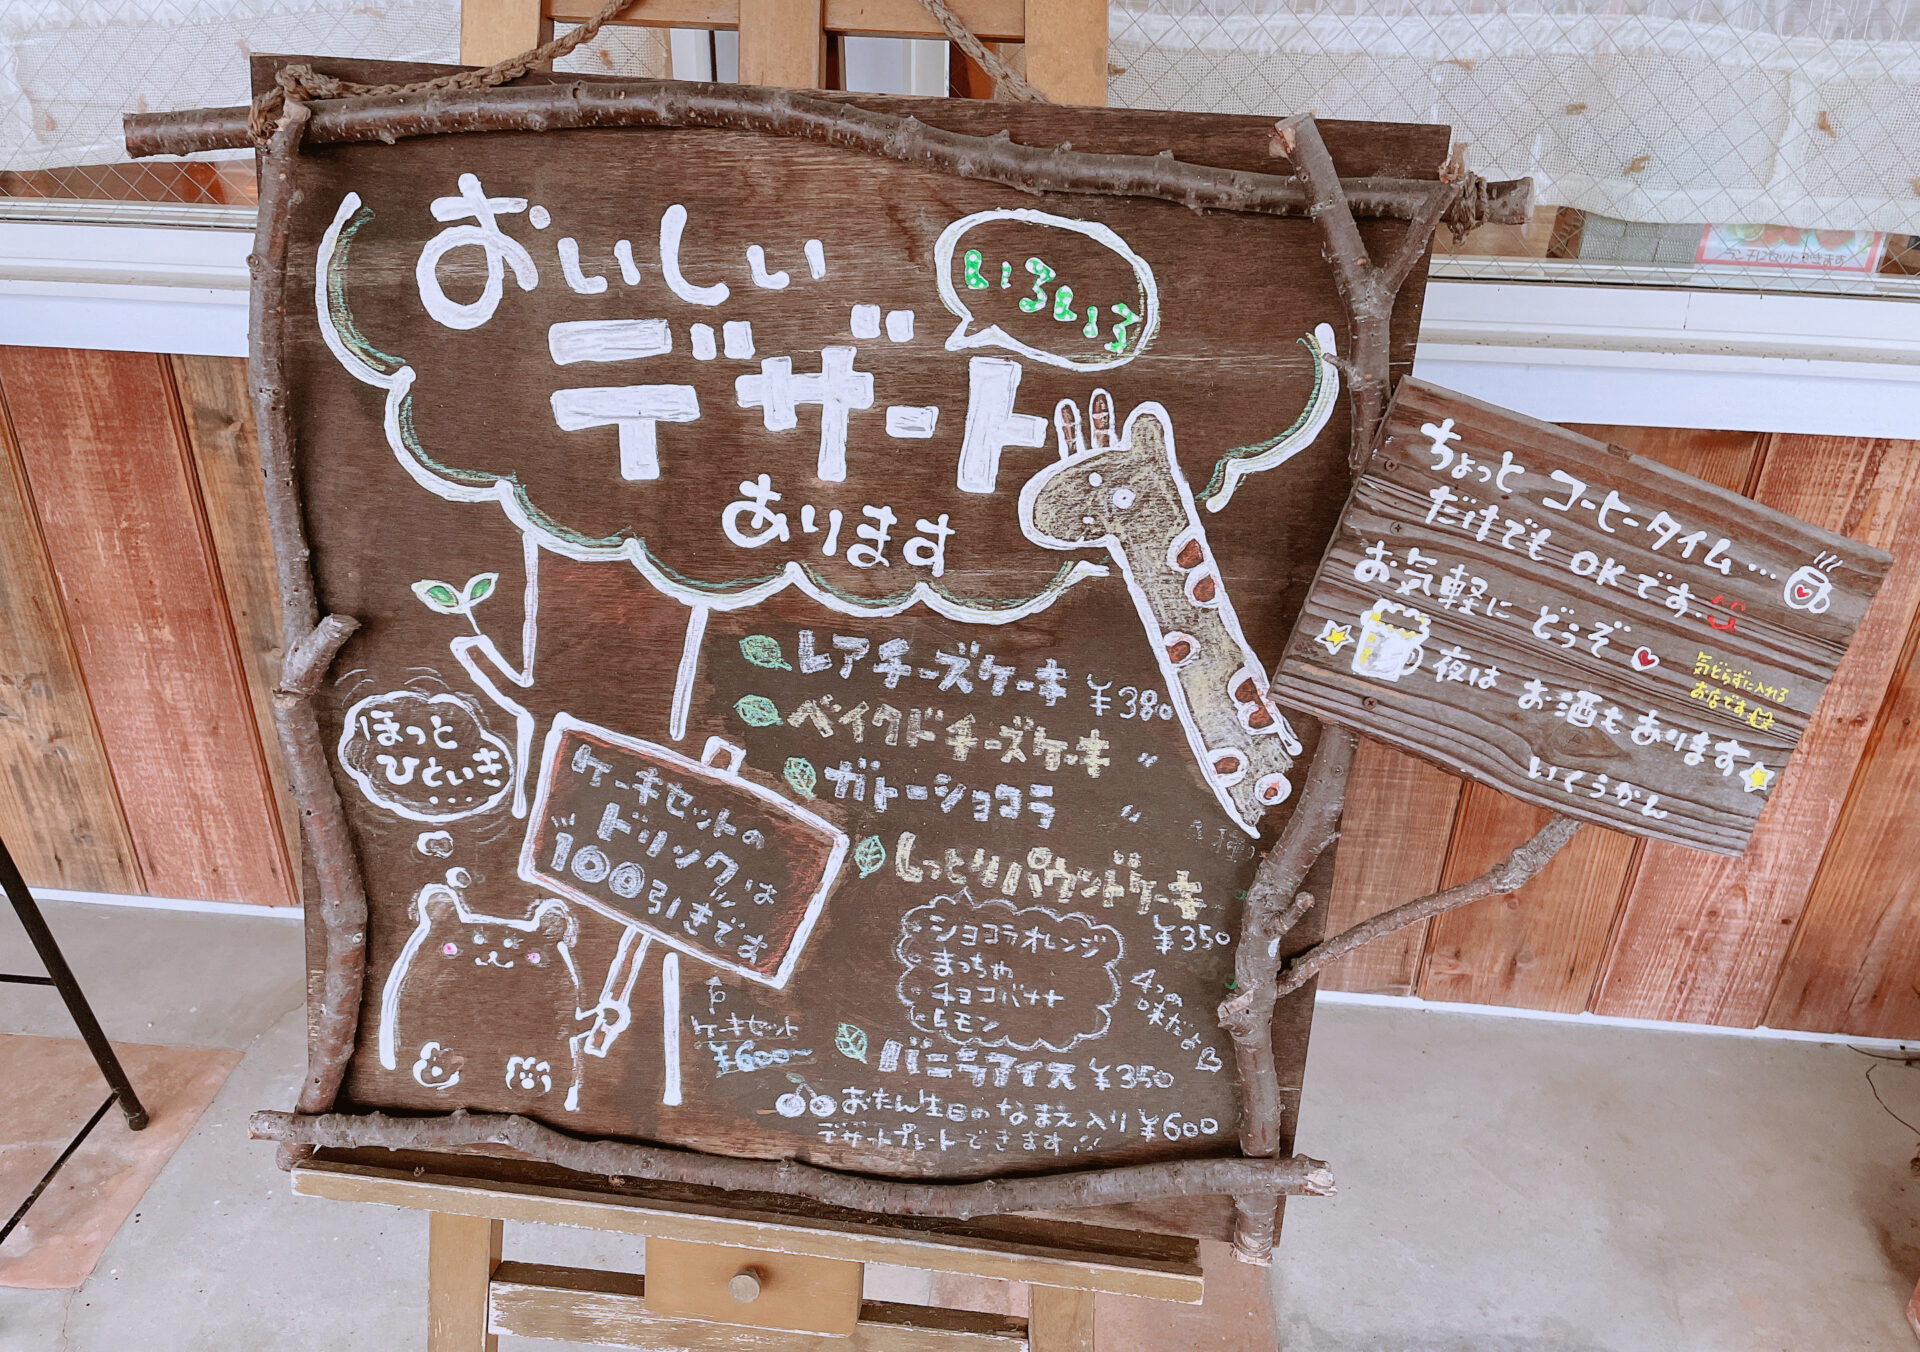 おいしい
いろいろ
デザート
あります
レアチーズケーキ ¥380
ベイクドチーズケーキ 〃
ガトーショコラ 〃
しっとりパウンドケーキ
¥350
ショコラオレンジ
まっちゃ
チョコバナナ
レモン
4つの
味だよ♡
バニラアイス ¥350
おたん生日のなまえ入り ¥600
デザートプレートできます
ほっと
ひといき
...
ケーキセットの
ドリンクは
100引きです
ケーキセット
¥600〜
ちょっと コーヒータイム...
だけでも OKです..
お気軽に どうぞ
夜は お酒もあります
気どらずに入れる
お店です
いくうかん